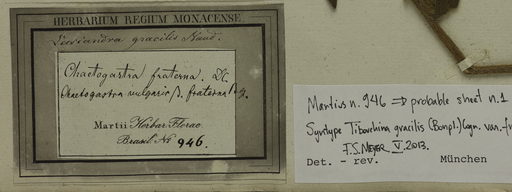 HERBARIUM REGIUM MONACENSE.
Lasiandra gracilis Naud.
Chaetogastra fraterna. DC
Chaetogastra vulgaris β. fraterna
Martii Herbar. Florae
Brasil. No 946.
Martius n. 946 ⇒ probable sheet n. 1
Syntype Tibouchina gracilis (Bonpl.) Cogn. var.
F.S. MEYER V. 2013.
Det. - rev. München